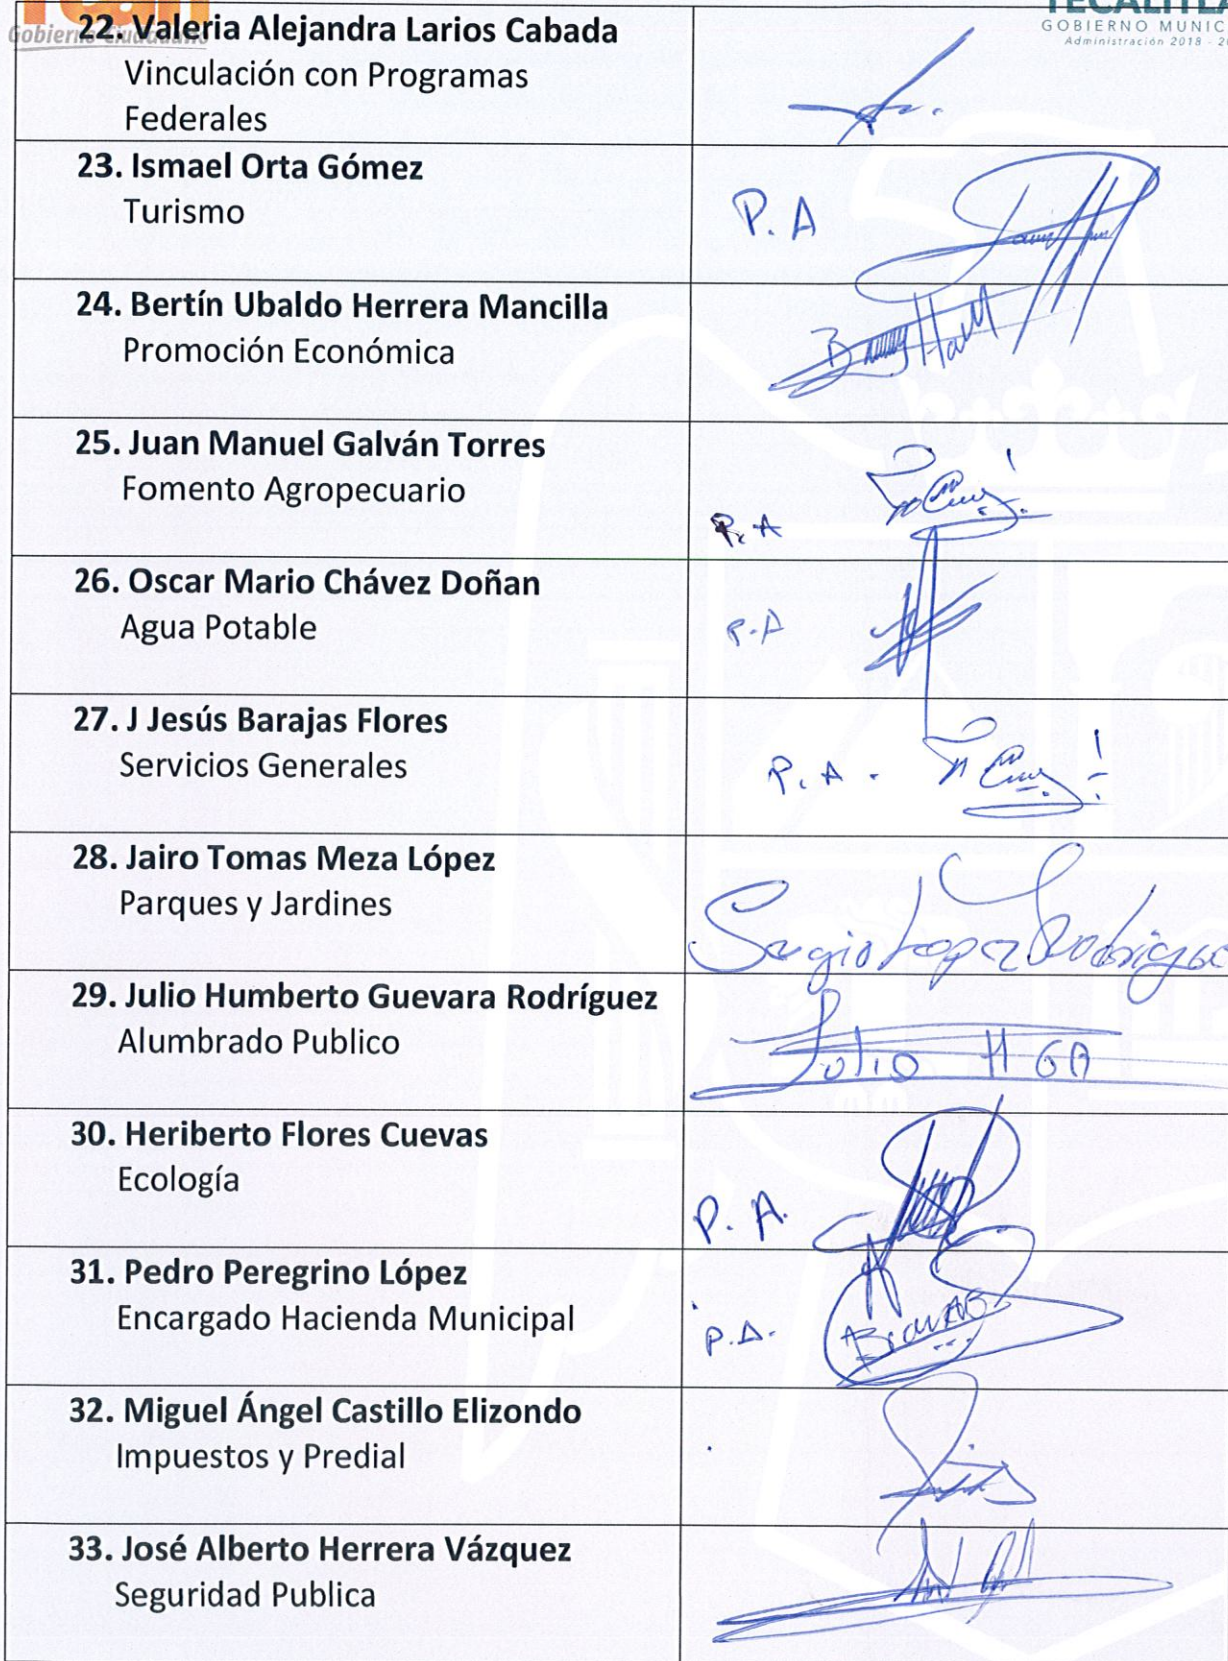 Gobierno Ciudadano
GOBIERNO MUNIC
Administración 2018 - 2
22. Valeria Alejandra Larios Cabada
Vinculación con Programas
Federales
23. Ismael Orta Gómez
Turismo
P. A
24. Bertín Ubaldo Herrera Mancilla
Promoción Económica
25. Juan Manuel Galván Torres
Fomento Agropecuario
P. A
26. Oscar Mario Chávez Doñan
Agua Potable
P.A
27. J Jesús Barajas Flores
Servicios Generales
P. A.
28. Jairo Tomas Meza López
Parques y Jardines
Sergio Lopez Rodriguez
29. Julio Humberto Guevara Rodríguez
Alumbrado Publico
Julio H GA
30. Heriberto Flores Cuevas
Ecología
P. A.
31. Pedro Peregrino López
Encargado Hacienda Municipal
P.A.
32. Miguel Ángel Castillo Elizondo
Impuestos y Predial
33. José Alberto Herrera Vázquez
Seguridad Publica